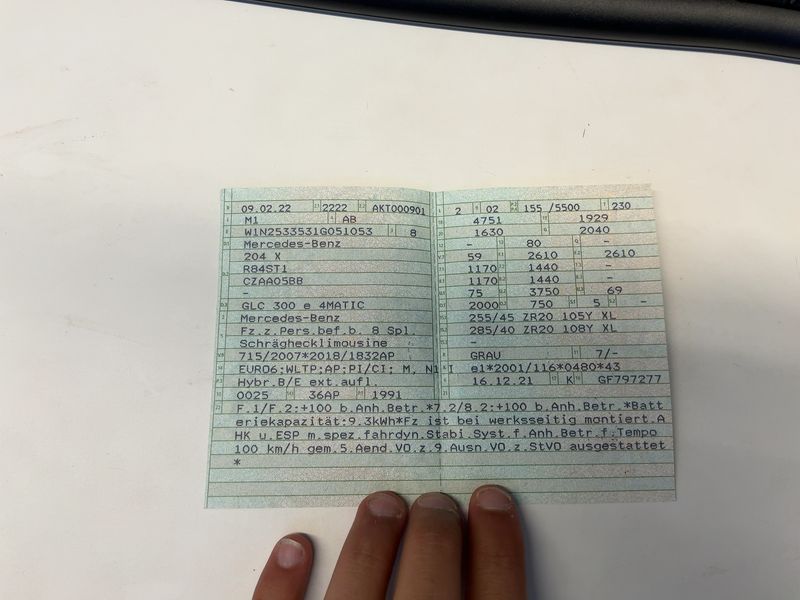 09.02.22 2222 AKT000901
M1 AB
W1N2533531G051053 8
Mercedes-Benz
204 X
R84ST1
CZAA05BB
-
GLC 300 e 4MATIC
Mercedes-Benz
Fz.z.Pers.bef.b. 8 Spl.
Schräghecklimousine
715/2007*2018/1832AP
EURO6;WLTP;AP;PI/CI; M, N1 I
Hybr.B/E ext.aufl.
0025 36AP 1991
2 02 155 /5500 230
4751 1929
1630 2040
- 80 -
59 2610 2610
1170 1440 -
1170 1440 -
75 3750 69
2000 750 5 -
255/45 ZR20 105Y XL
285/40 ZR20 108Y XL
-
-
GRAU 7/-
e1*2001/116*0480*43
16.12.21 K GF797277
F.1/F.2:+100 b.Anh.Betr.*7.2/8.2:+100 b.Anh.Betr.*Batt
eriekapazität:9.3kWh*Fz ist bei werksseitig montiert.A
HK u.ESP m.spez.fahrdyn.Stabi.Syst.f.Anh.Betr.f.Tempo
100 km/h gem.5.Aend.VO.z.9.Ausn.VO.z.StVO ausgestattet
*